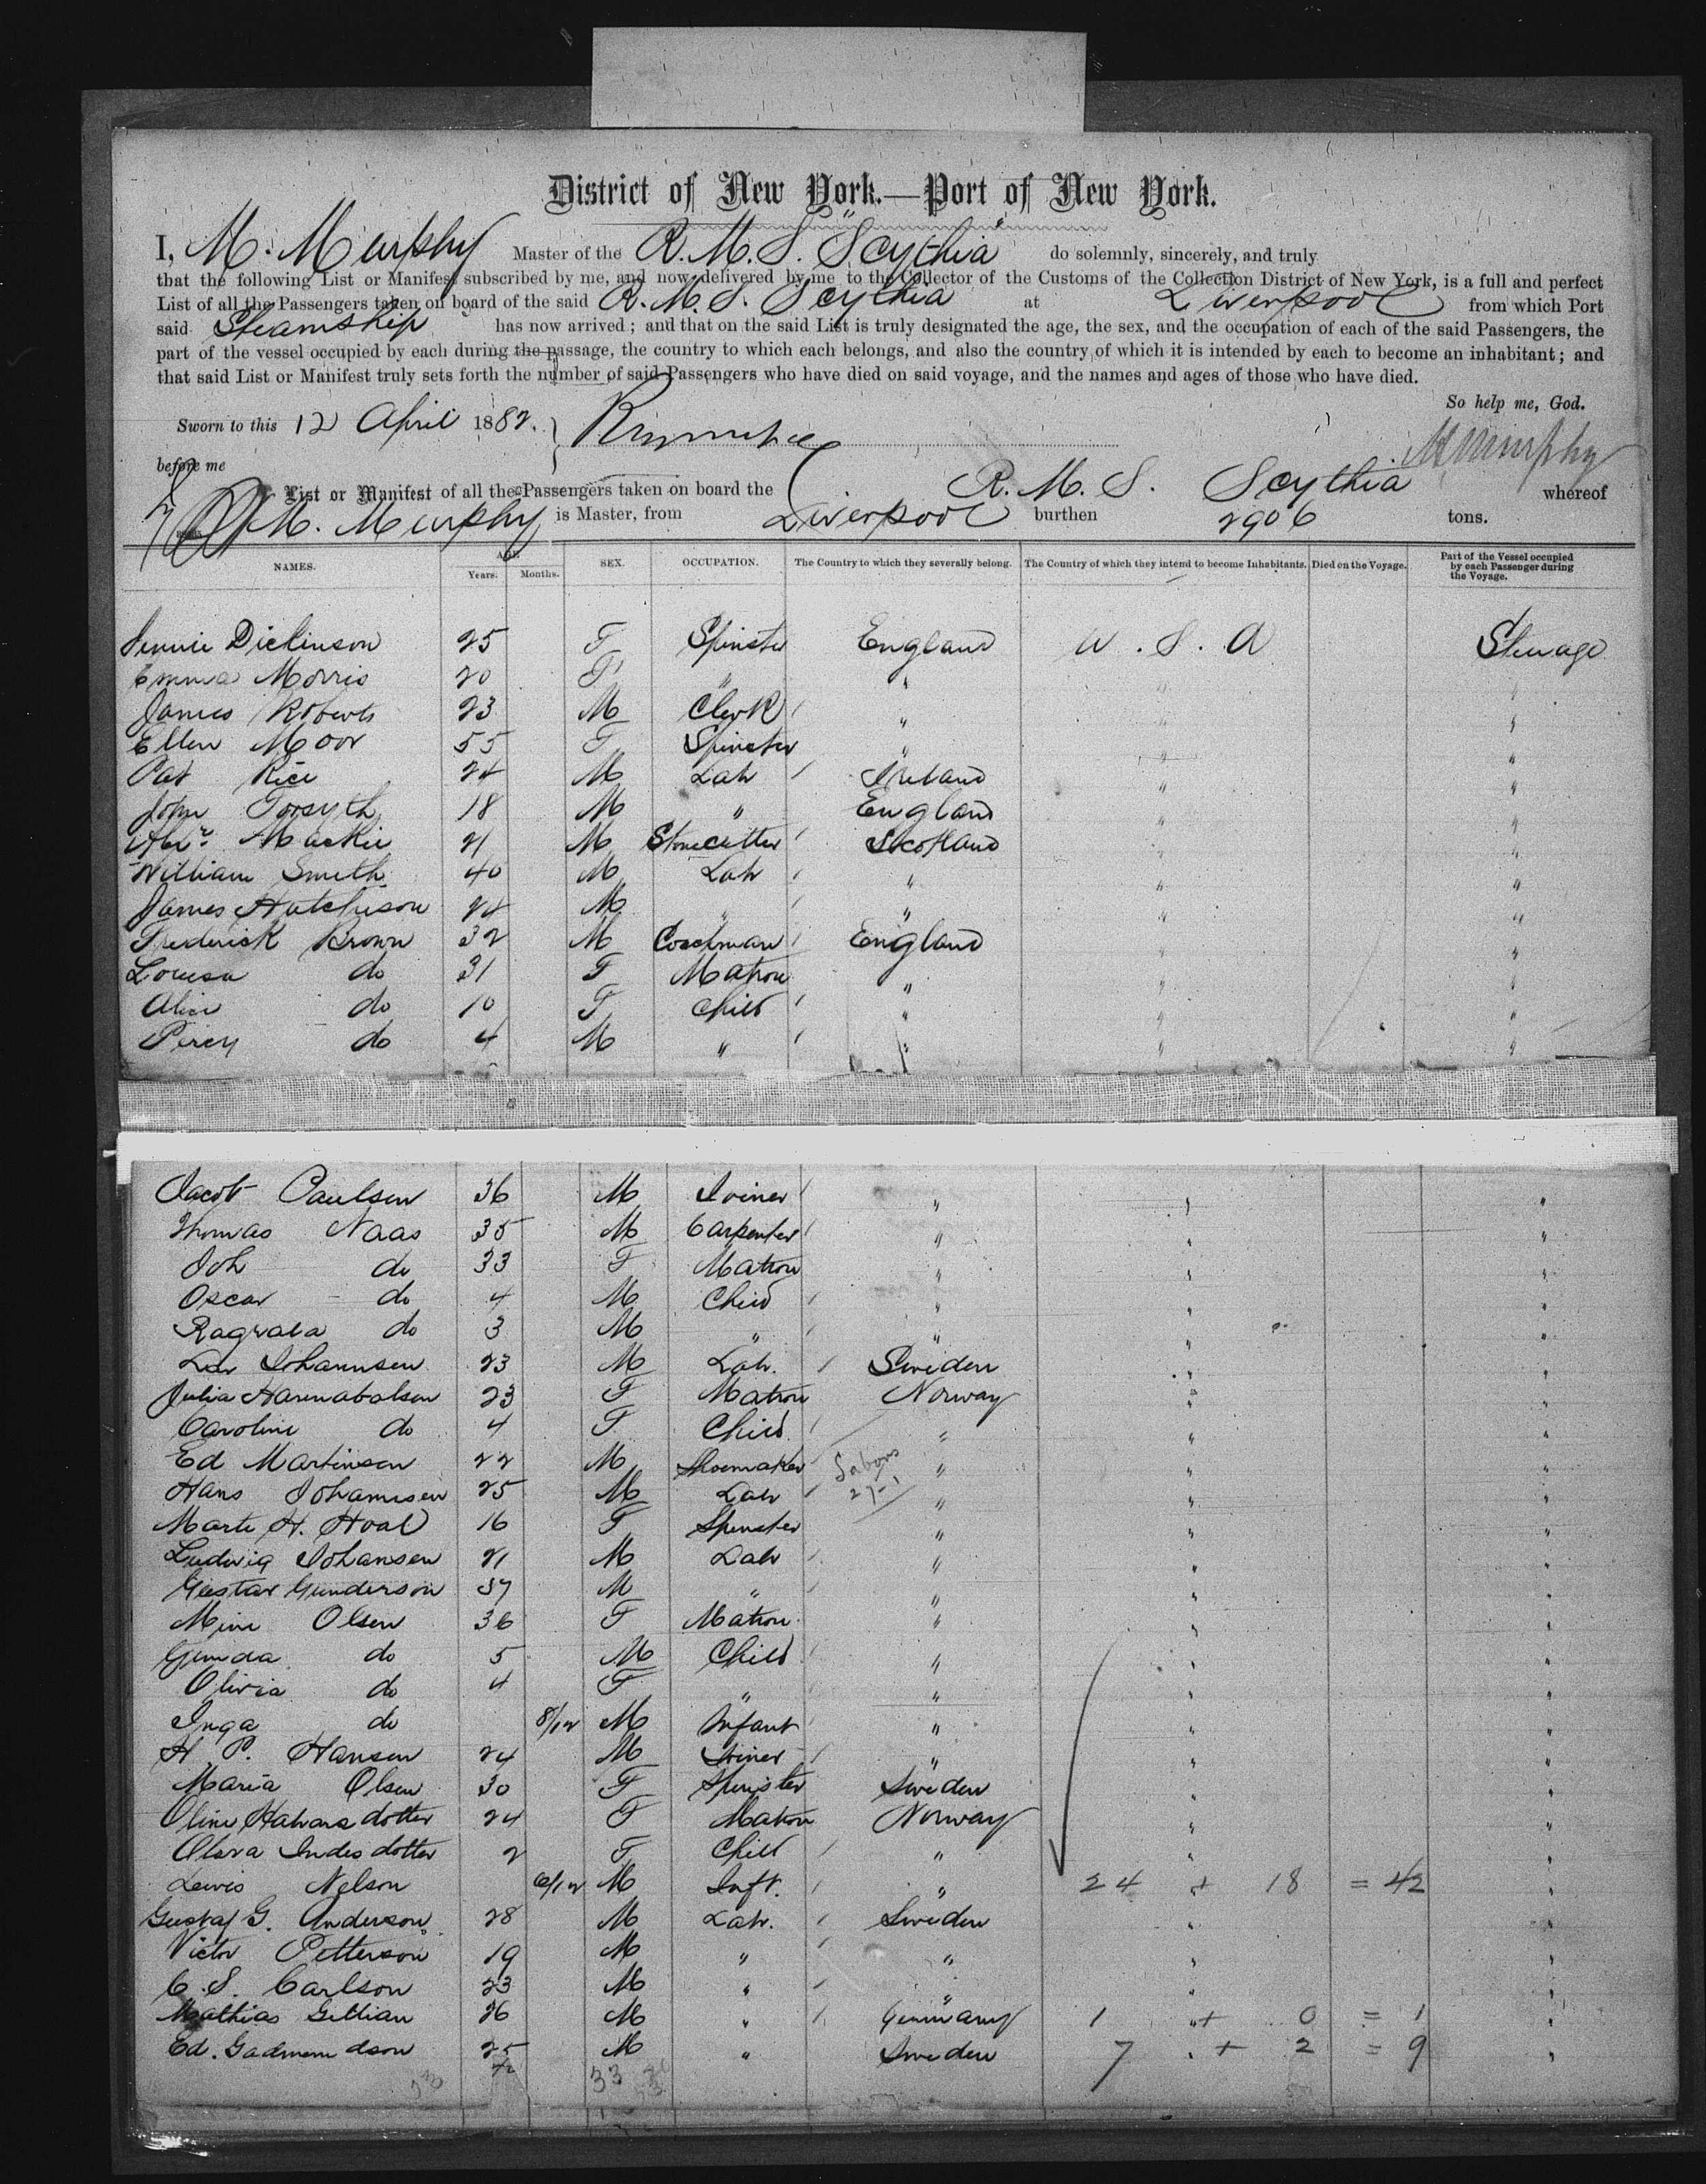 District of New York.—Port of New York.
I, M. Murphy Master of the R.M.S. "Scythia" do solemnly, sincerely, and truly
that the following List or Manifest subscribed by me, and now delivered by me to the Collector of the Customs of the Collection District of New York, is a full and perfect
List of all the Passengers taken on board of the said R.M.S. Scythia at Liverpool from which Port
said Steamship has now arrived; and that on the said List is truly designated the age, the sex, and the occupation of each of the said Passengers, the
part of the vessel occupied by each during the passage, the country to which each belongs, and also the country of which it is intended by each to become an inhabitant; and
that said List or Manifest truly sets forth the number of said Passengers who have died on said voyage, and the names and ages of those who have died.
So help me, God.
Sworn to this 12 April 1882.
M Murphy
before me
List or Manifest of all the Passengers taken on board the R.M.S. Scythia whereof
M. Murphy is Master, from Liverpool burthen 2906 tons.
NAMES. AGE. Years. Months. SEX. OCCUPATION. The Country to which they severally belong. The Country of which they intend to become Inhabitants. Died on the Voyage. Part of the Vessel occupied by each Passenger during the Voyage.
Jennie Dickinson 25 F Spinster England U.S.A Steerage
Emma Morris 20 F " " " "
James Roberts 23 M Clerk " " "
Ellen Moor 55 F Spinster " " "
Pat Rice 24 M Lab Ireland " "
John Forsyth 18 M " England " "
Alexr Mackie 21 M Stonecutter Scotland " "
William Smith 40 M Lab " " "
James Hutchison 24 M " " " "
Frederick Brown 32 M Coachman England " "
Louisa do 31 F Matron " " "
Alice do 10 F Child " " "
Percy do 4 M " " " "
Jacob Paulsen 36 M Joiner " " "
Thomas Naas 35 M Carpenter " " "
Joh do 33 F Matron " " "
Oscar do 4 M Child " " "
Ragvala do 3 M " " " "
Johannsen 23 M Lab. Sweden " "
Julia 23 F Matron Norway " "
Caroline do 4 F Child " " "
Ed Martinsen 22 M Shoemaker " " "
Hans Johannsen 25 M Lab " " "
Marte H. Hoal 16 F Spinster " " "
Ludwig Johansen 21 M Lab " " "
Gustav Gunderson 37 M " " " "
Mini Olsen 36 F Matron " " "
Gunda do 5 M Child " " "
Olivia do 4 F " " " "
Inga do 8/12 M Infant " " "
H P. Hansen 24 M Joiner " " "
Maria Olsen 30 F Spinster Sweden " "
Oline Halvorsdotter 24 F Matron Norway " "
Olava Indesdotter 2 F Child " " "
Lewis Nelson 6/12 M Inft. " 24 + 18 = 42 "
Gustaf G. Anderson 28 M Lab. Sweden " "
Victor Petterson 19 M " " " "
C. S. Carlson 23 M " " " "
Mathias Gillian 26 M " Germany 1 + 0 = 1 "
Ed. Gadmundson 25 M " Sweden 7 + 2 = 9 "
33